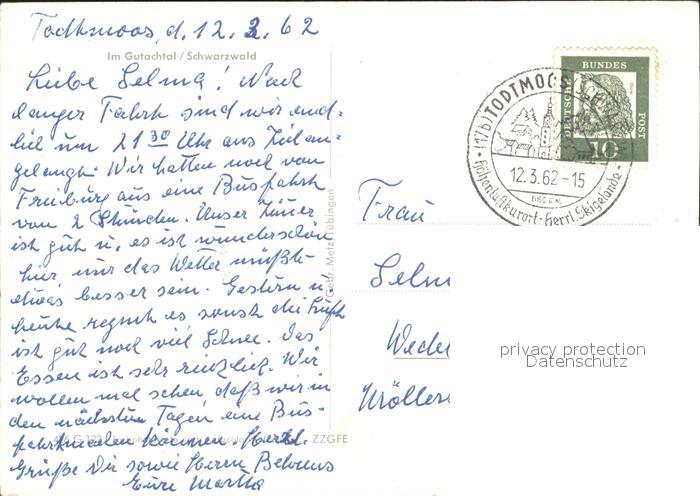 Todtmoos, d. 12.3.62
Im Gutachtal / Schwarzwald
Liebe Selma! Nach
langer Fahrt sind wir end-
lich um 21 30 Uhr ans Ziel an-
gelangt. Wir hatten noch von
Freiburg aus eine Busfahrt
von 2 Stunden. Unser Zimmer
ist gut u. es ist wunderschön
hier nur das Wetter müßte
etwas besser sein. Gestern u.
heute regnet es sonst die Luft
ist gut noch viel Schnee. Das
Essen ist sehr reichlich. Wir
wollen mal sehen, daß wir in
den nächsten Tagen eine Bus-
fahrt machen können. Herzl.
Grüße Dir sowie Herrn Behrens
Eure Martha
Gebr. Metz, Tübingen
ZZGFE
(17b) TODTMOOS
12.3.62-15
Höhenluftkurort · Herrl. Skigelände
DEUTSCHE
BUNDES
POST
10
Frau
Selm
Wedel
Möllers
privacy protection
Datenschutz